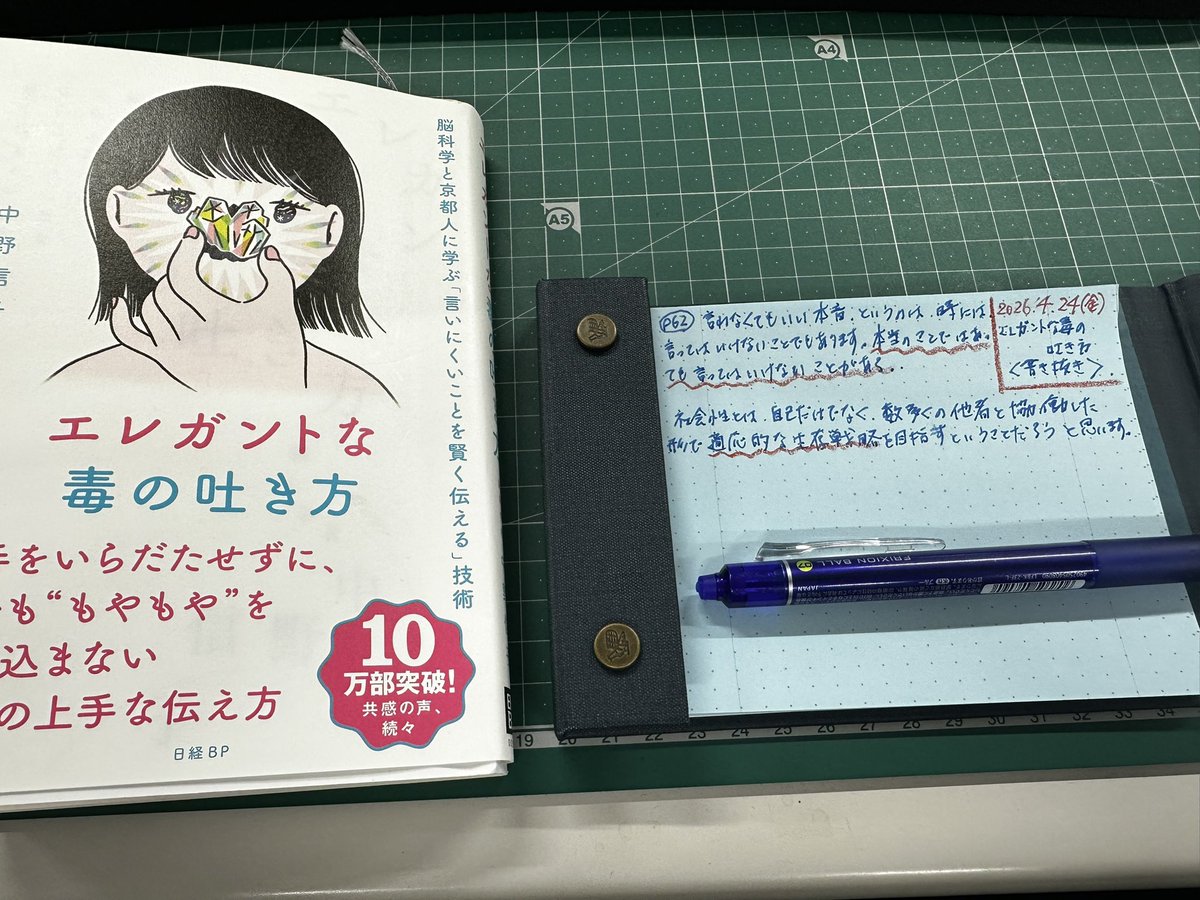 脳科学と京都人に学ぶ「言いにくいことを賢く伝える」技術
中野信子
エレガントな
毒の吐き方
手をいらだたせずに、
も“もやもや”を
込まない
の上手な伝え方
10
万部突破!
共感の声、
続々
日経BP
A4
A5
2026.4.24(金)
エレガントな毒の
吐き方
<書き抜き>.
P62 言わなくてもいい本音、というのは、時には
言ってはいけないことでもあります。本当のことではあっ
ても言ってはいけないことがある。
社会性とは、自己だけでなく、数多くの他者と協働した
形で適応的な生存戦略を目指すということだろうと思います。
FRIXION BALL 07
JAPAN
19 20 21 22 23 24 25 26 27 28 29 30 31 32 33 34